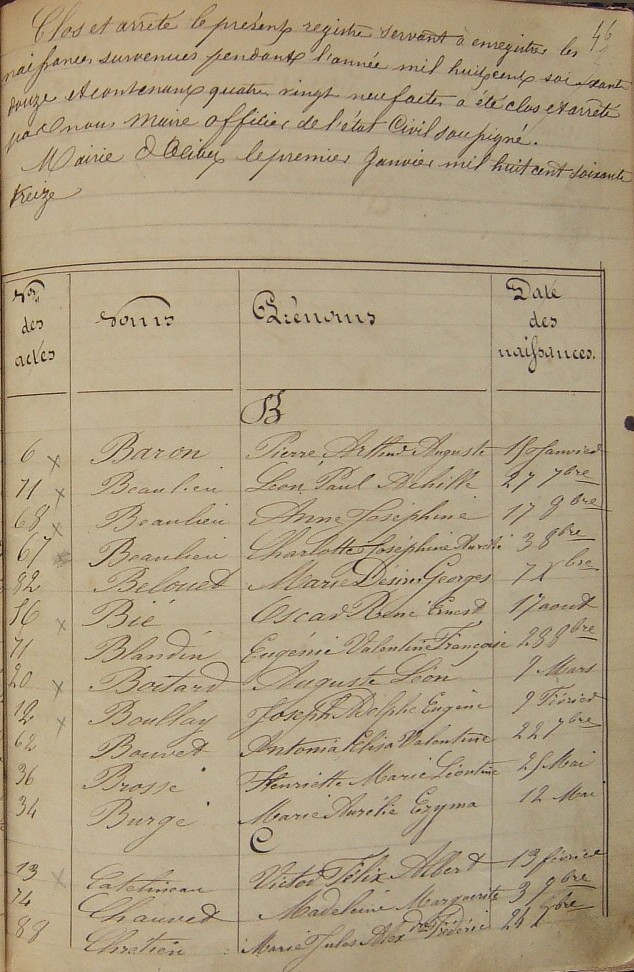 46
Clos et arrêté le présent registre servant à enregistrer les
naissances survenues pendant l'année mil huit cent soixante
douze et contenant quatre vingt neuf actes a été clos et arrêté
par nous Maire officier de l'état Civil soussigné.
Mairie le premier Janvier mil huit cent soixante
treize
Nos des actes Noms Prénoms Date des naissances.
B
6 x Baron Pierre Arthur Auguste Janvier
71 x Beaulieu Léon Paul Achille 27 7bre
68 x Beaulieu Anne Joséphine 17 9bre
67 Beaulieu Charlotte Joséphine Aurélie 3 8bre
82 Belouet Marie Désiré Georges 7 Xbre
56 x Bié Oscar René Ernest 17 aout
71 Blandin Eugénie Valentine Françoise 28 8bre
20 x Boitard Auguste Léon 9 Mars
12 x Boullay Joseph Adolphe Eugène 9 Février
62 Bouvet Antonia Elisa Valentine 22 7bre
36 Brosse Henriette Marie Léontine 25 Mai
34 Burge Marie Aurélie Ezyma 12 Mai
C
13 x Catelineau Victor Félix Albert 13 février
74 Chauvet Madeleine Marguerite 3 9bre
88 Chrétien Marie Jules Alex Frédéric 24 Xbre